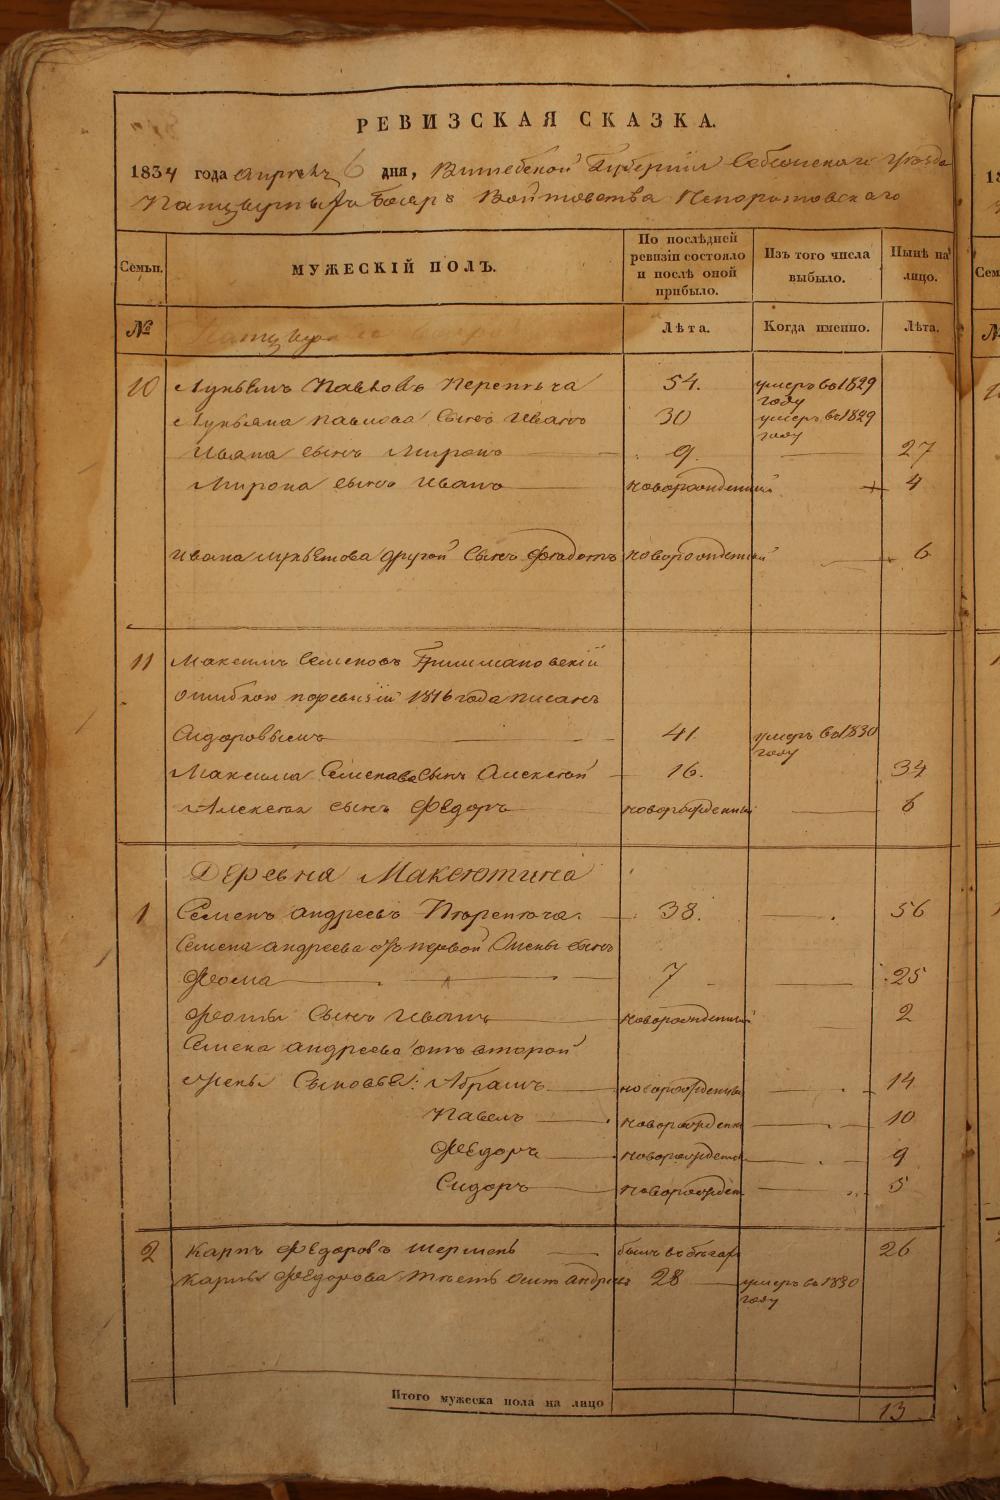 РЕВИЗСКАЯ СКАЗКА.
1834 года апреля 6 дня, Витебской Губернии Себежскаго уезда
Панцырныхъ Бояръ Войтовства Непоротовскаго
Семьи. МУЖЕСКІЙ ПОЛЪ. По послѣдней ревизіи состояло и послѣ оной прибыло. Изъ того числа выбыло. Нынѣ на лицо.
№ Лѣта. Когда именно. Лѣта.
10 Лукьянъ Павловъ Перепеча 54. умеръ въ 1829 году
Лукьяна Павлова сынъ Иванъ 30 умеръ въ 1829 году
Ивана сынъ Миронъ 9 27
Мирона сынъ Иванъ новорожденный 4
Ивана Лукьянова другой сынъ новорожденный 6
11 Максимъ Семеновъ
ошибкою по ревизіи 1816 года писанъ
Сидоровымъ 41 умеръ въ 1830 году
Максима Семенова сынъ Алексей 16. 34
Алексея сынъ Федоръ новорожденный 6
Деревня Максютина
1 Семенъ Андреевъ 38. 56
Семена Андреева отъ первой жены сынъ
Фома 7 25
Фомы сынъ Иванъ новорожденный 2
Семена Андреева отъ второй
жены сыновья: Абрамъ новорожденный 14
Павелъ новорожден 10
Федоръ новорожден 9
Сидоръ новорожден 5
2 Карпъ Федоровъ былъ въ бегах 26
Карпа Федорова тесть Осип Андреев 28 умеръ въ 1830 году
Итого мужеска пола на лицо 13